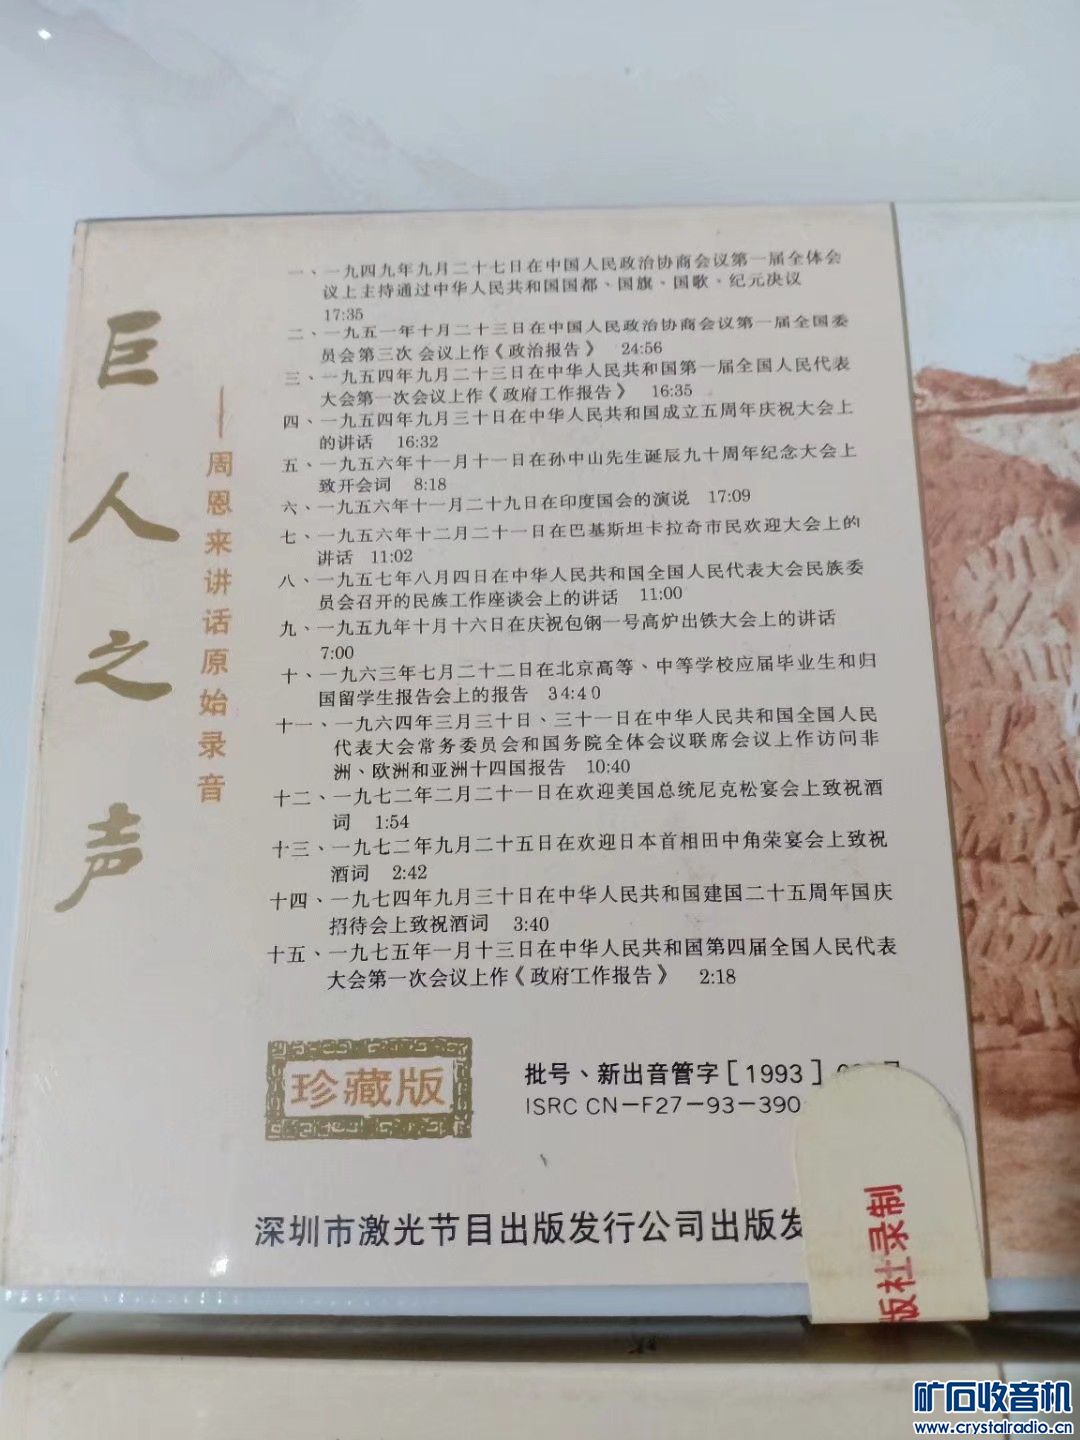 巨人之声
——周恩来讲话原始录音
一、一九四九年九月二十七日在中国人民政治协商会议第一届全体会
议上主持通过中华人民共和国国都、国旗、国歌、纪元决议
17:35
二、一九五一年十月二十三日在中国人民政治协商会议第一届全国委
员会第三次 会议上作《政治报告》 24:56
三、一九五四年九月二十三日在中华人民共和国第一届全国人民代表
大会第一次会议上作《政府工作报告》 16:35
四、一九五四年九月三十日在中华人民共和国成立五周年庆祝大会上
的讲话 16:32
五、一九五六年十一月十一日在孙中山先生诞辰九十周年纪念大会上
致开会词 8:18
六、一九五六年十一月二十九日在印度国会的演说 17:09
七、一九五六年十二月二十一日在巴基斯坦卡拉奇市民欢迎大会上的
讲话 11:02
八、一九五七年八月四日在中华人民共和国全国人民代表大会民族委
员会召开的民族工作座谈会上的讲话 11:00
九、一九五九年十月十六日在庆祝包钢一号高炉出铁大会上的讲话
7:00
十、一九六三年七月二十二日在北京高等、中等学校应届毕业生和归
国留学生报告会上的报告 34:40
十一、一九六四年三月三十日、三十一日在中华人民共和国全国人民
代表大会常务委员会和国务院全体会议联席会议上作访问非
洲、欧洲和亚洲十四国报告 10:40
十二、一九七二年二月二十一日在欢迎美国总统尼克松宴会上致祝酒
词 1:54
十三、一九七二年九月二十五日在欢迎日本首相田中角荣宴会上致祝
酒词 2:42
十四、一九七四年九月三十日在中华人民共和国建国二十五周年国庆
招待会上致祝酒词 3:40
十五、一九七五年一月十三日在中华人民共和国第四届全国人民代表
大会第一次会议上作《政府工作报告》 2:18
珍藏版
批号、新出音管字[1993]
ISRC CN-F27-93-390
深圳市激光节目出版发行公司出版发
版社录制
矿石收音机
www.crystalradio.cn